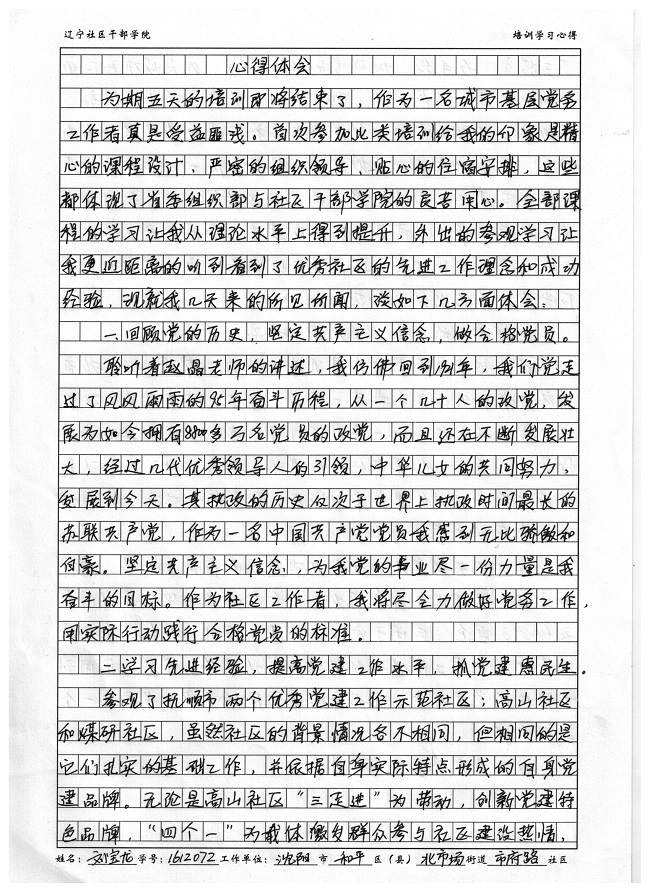 辽宁社区干部学院 培训学习心得
心得体会
为期五天的培训即将结束了，作为一名城市基层党务
工作者真是受益匪浅。首次参加此类培训给我的印象是精
心的课程设计、严密的组织领导、贴心的住宿安排，这些
都体现了省委组织部与社区干部学院的良苦用心。全部课
程的学习让我从理论水平上得到提升，外出的参观学习让
我更近距离的听到看到了优秀社区的先进工作理念和成功
经验，现就我几天来的所见所闻，谈如下几方面体会：
一.回顾党的历史，坚定共产主义信念，做合格党员。
聆听着赵晶老师的讲述，我仿佛回到1921年，我们党走
过了风风雨雨的95年奋斗历程，从一个几十人的政党，发
展为如今拥有8800多万名党员的政党，而且还在不断发展壮
大，经过几代优秀领导人的引领，中华儿女的共同努力，
发展到今天。其执政的历史仅次于世界上执政时间最长的
苏联共产党，作为一名中国共产党党员我感到无比骄傲和
自豪。坚定共产主义信念，为我党的事业尽一份力量是我
奋斗的目标。作为社区工作者，我将尽全力做好党务工作，
用实际行动践行合格党员的标准。
二.学习先进经验，提高党建工作水平，抓党建惠民生。
参观了抚顺市两个优秀党建工作示范社区：高山社区
和煤研社区，虽然社区的背景情况各不相同，但相同的是
它们扎实的基础工作，并依据自身实际特点形成的自身党
建品牌。无论是高山社区“三走进”为带动，创新党建特
色品牌，“四个一”为载体激发群众参与社区建设热情，
姓名：刘宝龙 学号：1612072 工作单位：沈阳 市 和平 区（县） 北市场 街道 市府路 社区